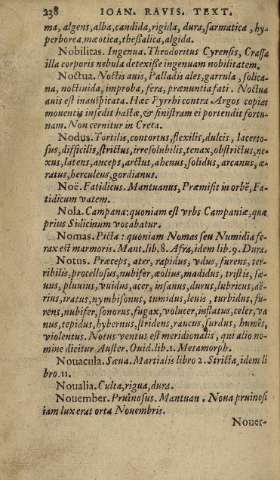 238 IOAN. RAVIS. TEXT.
ma, algens, alba, candida, rigida, dura, sarmatica, hy-
perborea, mæotica, thessalica, algida.
Nobilitas. Ingenua. Theodoritus Cyrensis, Crassa
illa corporis nebula detexisse ingenuam nobilitatem.
Noctua. Noctis auis, Palladis ales, garrula, solica-
na, noctiuida, improba, fera, prænuntia fati. Noctua
auis est inauspicata. Hæc Pyrrhi contra Argos copias
mouentis insedit hastæ, & sinistram ei portendit fortu-
nam. Non cernitur in Creta.
Nodus. Tortilis, contortus, flexilis, dulcis, lacerto-
sus, difficilis, strictus, irresolubilis, tenax, obstrictus, ne-
xus, latens, anceps, arctus, ahenus, solidus, arcanus, æ-
ratus, herculeus, gordianus.
Noë. Fatidicus. Mantuanus, Præmisit in orbē, Fa-
tidicum vatem.
Nola. Campana: quoniam est vrbs Campaniæ, quæ
prius Sidicinum vocabatur.
Nomas. Picta: quoniam Nomas seu Numidia fe-
rax est marmoris. Mant. lib. 8. Afra, idem lib. 9. Dura.
Notus. Præceps, ater, rapidus, vdus, furens, ter-
ribilis, procellosus, nubifer, æolius, madidus, tristis, sæ-
uus, pluuius, vuidus, acer, insanus, durus, lubricus, aë-
rius, iratus, nymbisonus, tumidus, leuis, turbidus, fu-
rens, nubifer, sonorus, fugax, volucer, inflatus, celer, va
nus, tepidus, hybernus, stridens, raucus, surdus, humēs,
violentus. Notus ventus est meridionalis, qui alio no-
mine dicitur Auster. Ouid. lib. 1. Metamorph.
Nouacula. Sæua. Martialis libro 2. Stricta, idem li
bro. 11.
Noualia. Culta, rigua, dura.
Nouember. Pruinosus. Mantuan. Noua pruinosi
iam lux erat orta Nouembris.
Nouer-